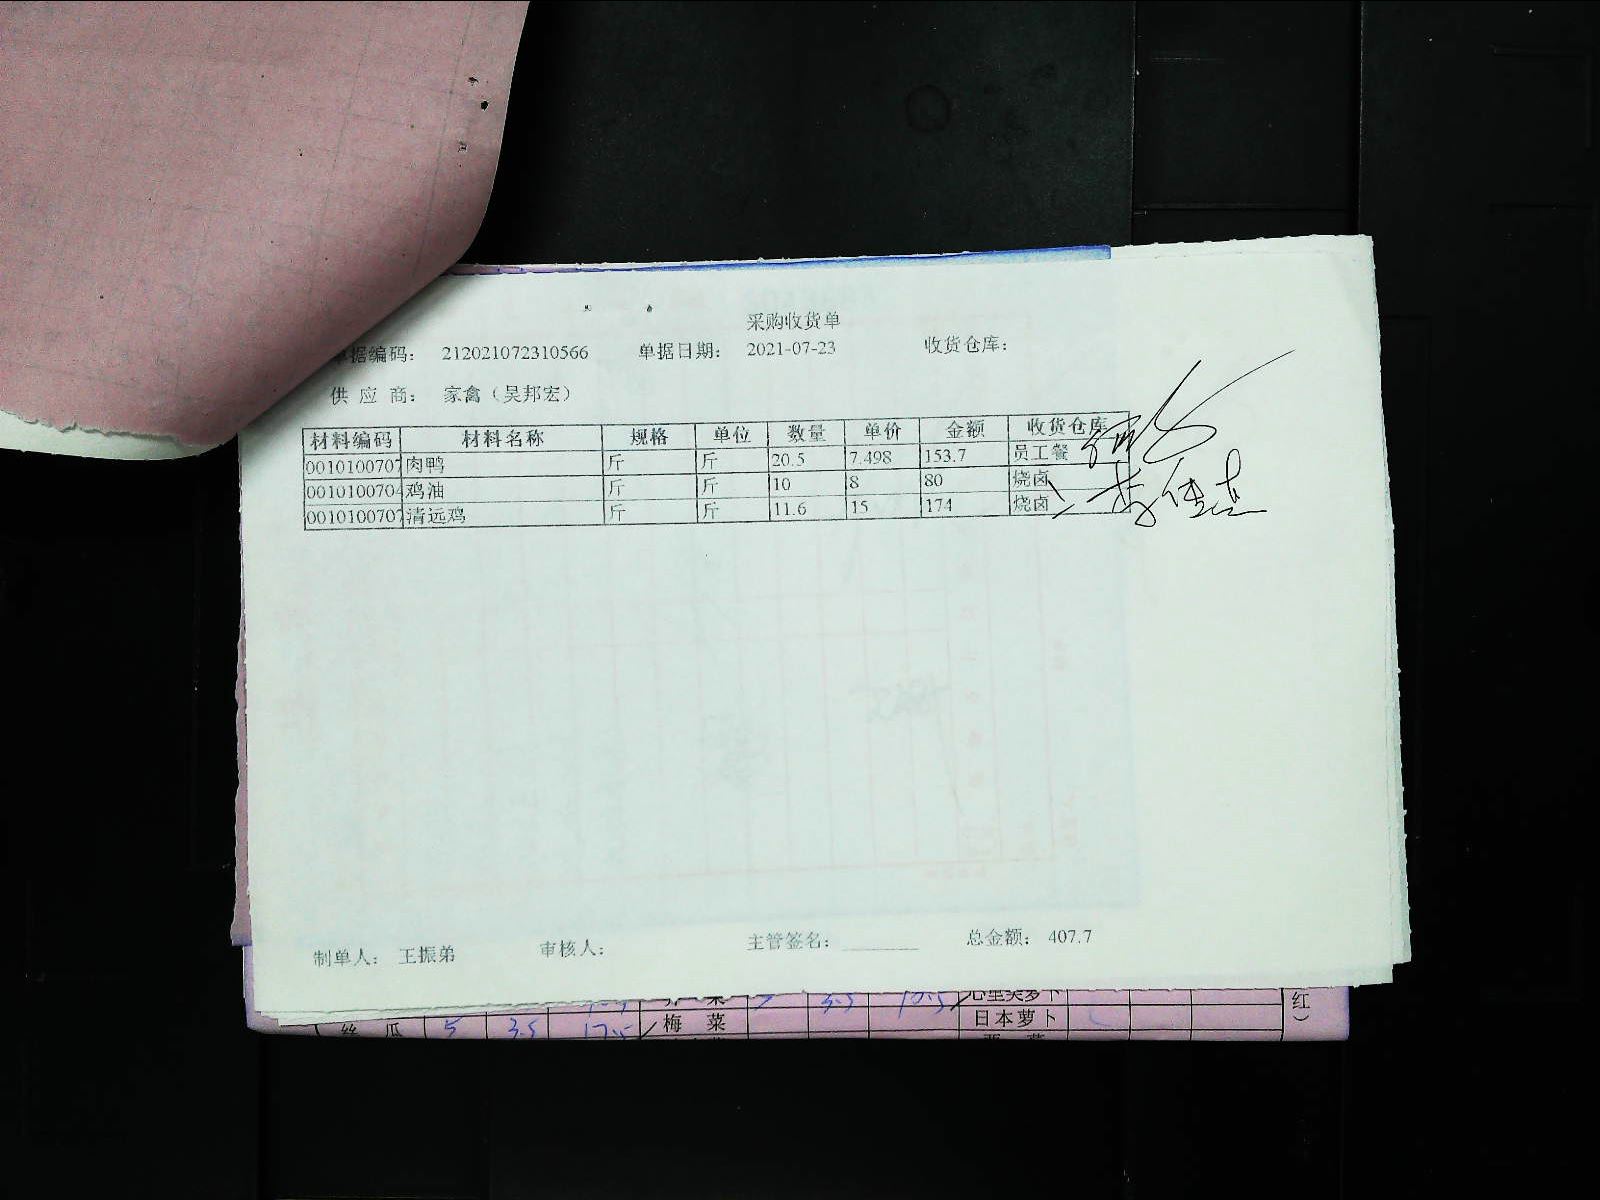 采购收货单
单据编码： 212021072310566 单据日期： 2021-07-23 收货仓库：
供 应 商： 家禽（吴邦宏）
材料编码 材料名称 规格 单位 数量 单价 金额 收货仓库
0010100707 肉鸭 斤 斤 20.5 7.498 153.7 员工餐
0010100704 鸡油 斤 斤 10 8 80 烧卤
0010100707 清远鸡 斤 斤 11.6 15 174 烧卤
制单人： 王振弟 审核人： 主管签名： 总金额： 407.7
丝 瓜 5 3.5 17.5 梅 菜 日本萝卜
红）